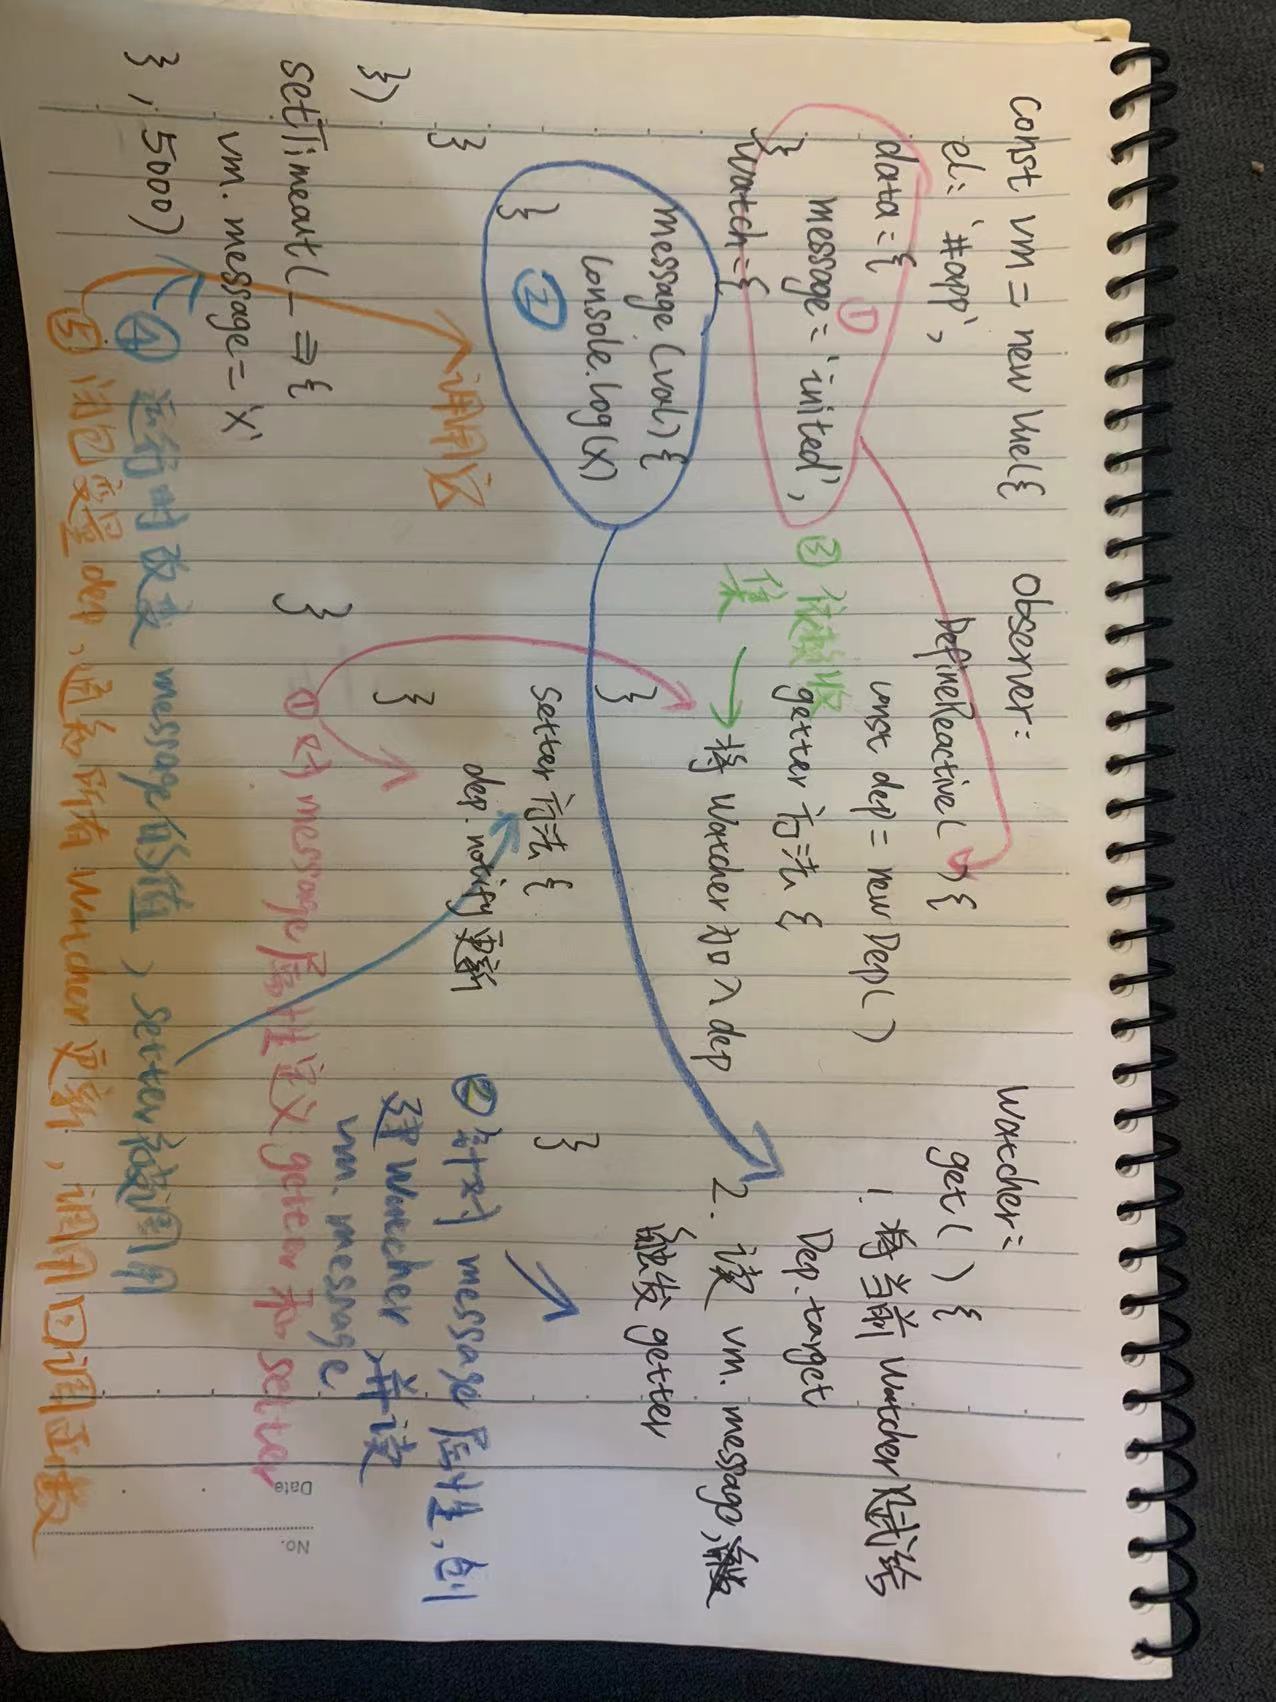 const vm = new Vue({
el: '#app',
data:{
①
message: 'inited',
}
watch:{
message (val) {
console.log(x)
}
②
}
})
调用它
setTimeout(_ => {
vm. message = 'x'
} , 5000)
Observer:
DefineReactive( ) {
const dep = new Dep( )
③ 依赖收
集
getter 方法 {
将 Watcher 加入 dep
}
setter 方法 {
dep. notify 更新
}
}
Watcher:
get( ) {
1. 将当前 Watcher 赋给
Dep. target
2. 读 vm. message,
触发 getter
}
② 针对 message 属性, 创
建 Watcher , 并读
vm. message
① 对 message 属性定义 getter 和 setter
④ 运行时改变 message 的值 , setter 被调用
⑤ 闭包变量 dep, 通知所有 Watcher 更新 , 调用回调函数
No.
Date